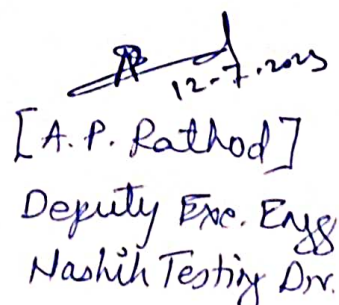 12-7-2023
[A. P. Rathod]
Deputy Exe. Engg
Nashik Testing Dn.